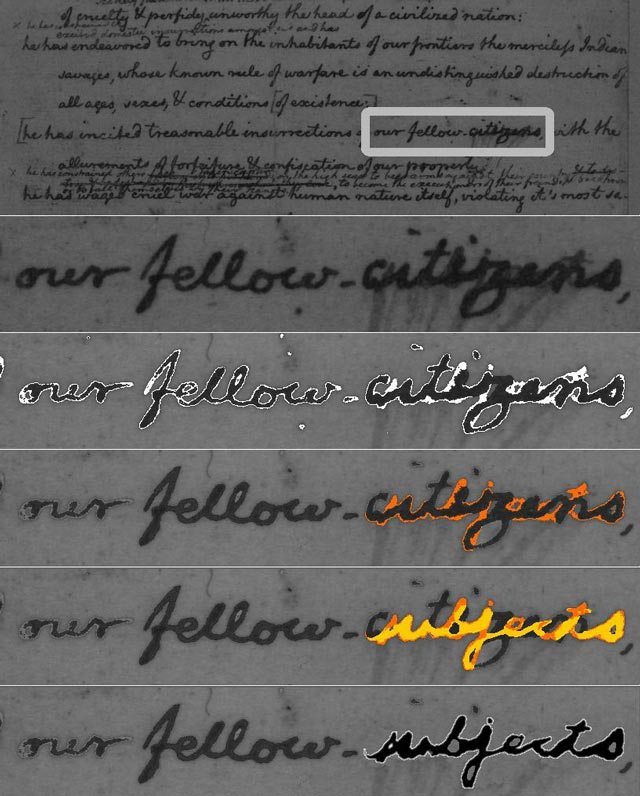 of cruelty & perfidy unworthy the head of a civilized nation:
he has endeavored to bring on the inhabitants of our frontiers the merciless Indian
savages, whose known rule of warfare is an undistinguished destruction of
all ages, sexes, & conditions [of existence:]
[he has incited treasonable insurrections of our fellow-citizens, with the
allurements of forfeiture & confiscation of our property.
he has waged cruel war against human nature itself, violating it's most sa-
our fellow-citizens,
our fellow-citizens,
our fellow-citizens,
our fellow-subjects,
our fellow-subjects,